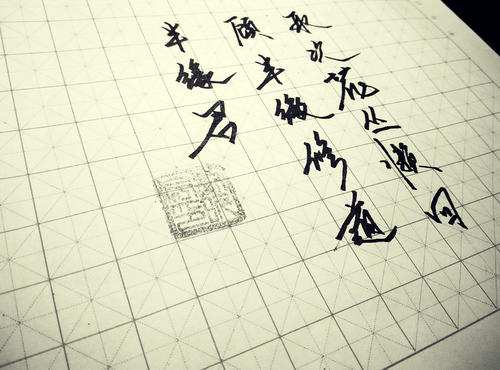 取次花丛懒回
顾半缘修道
半缘君